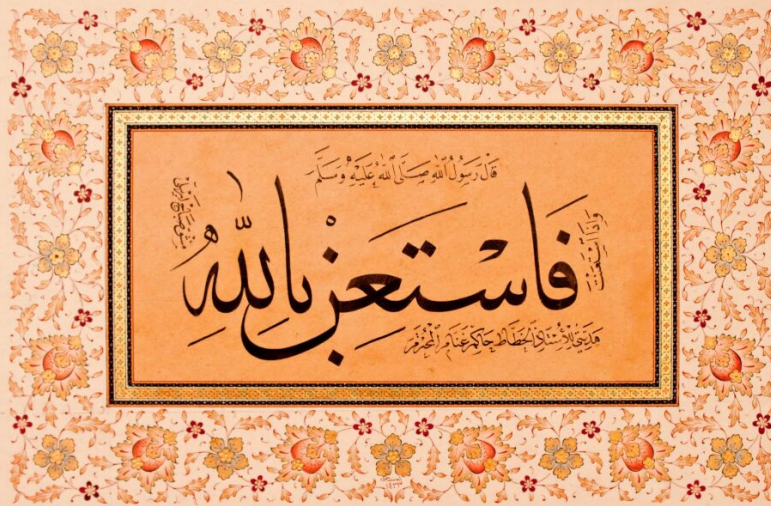 قَالَ رَسُولُ اللهِ صَلَّى اللهُ عَلَيْهِ وَسَلَّمَ
وَإِذَا اسْتَعَنْتَ
فَاسْتَعِنْ بِاللهِ
هديتي للأستاذ الخطاط حاكم غنام المحترم